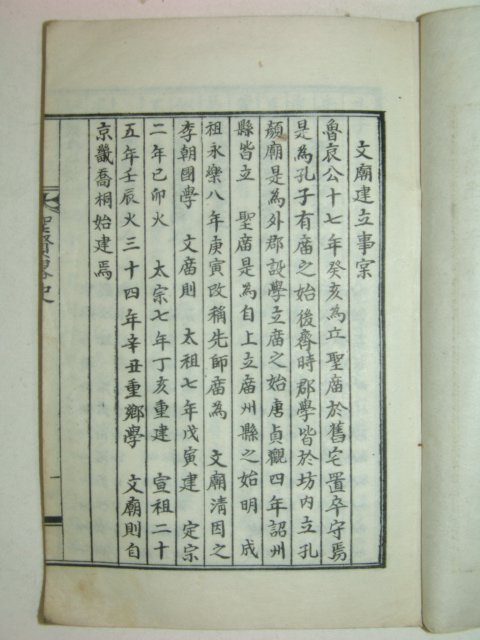 文廟建立事宗
魯哀公十七年癸亥為立 聖廟於舊宅置卒守焉
是為孔子有廟之始後齊時郡學皆於坊內立孔
顏廟是為外郡設學立廟之始唐貞觀四年詔州
縣皆立 聖廟是為自上立廟州縣之始明 成
祖永樂八年庚寅改稱先師廟為 文廟清因之
李朝國學 文廟則 太祖七年戊寅建 定宗
二年己卯火 太宗七年丁亥重建 宣祖二十
五年壬辰火三十四年辛丑重鄉學 文廟則自
京畿喬桐始建焉
聖賢
史
一